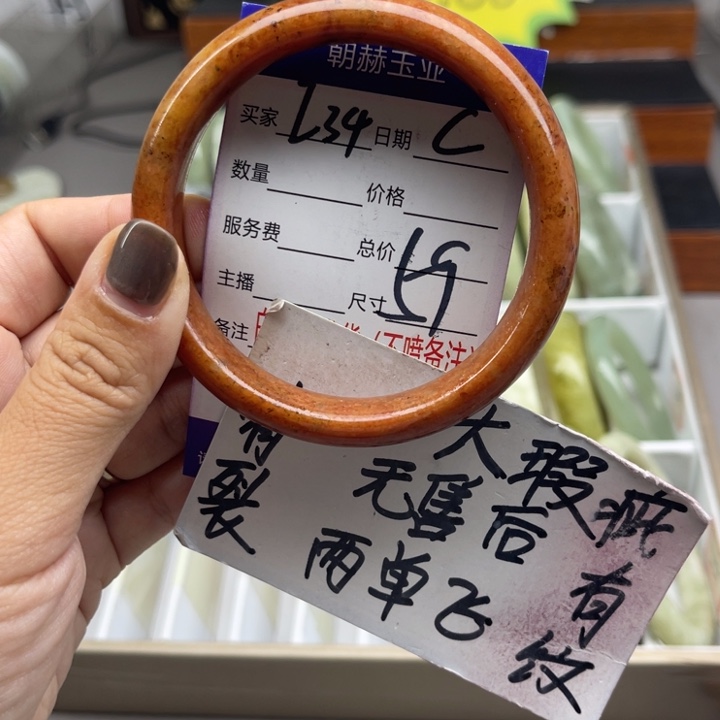 朝赫玉业
买家 L34 日期 C
数量 价格
服务费 总价
主播 尺寸 59
备注 (不喷备注)
大瑕疵有纹
有裂
无售后
两单飞